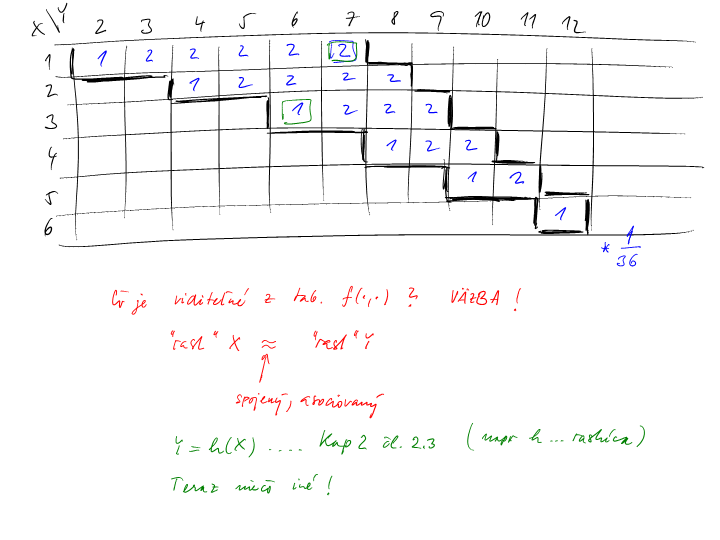 X\Y 2 3 4 5 6 7 8 9 10 11 12
1 1 2 2 2 2 2
2 1 2 2 2 2
3 1 2 2 2
4 1 2 2
5 1 2
6 1
* 1/36
Čo je viditeľné z tab. f(·,·) ? VÄZBA !
"rast" X ≈ "rast" Y
spojený, asociovaný
Y = h(X) .... Kap 2 čl. 2.3 (napr h ... rastúca)
Teraz niečo iné !